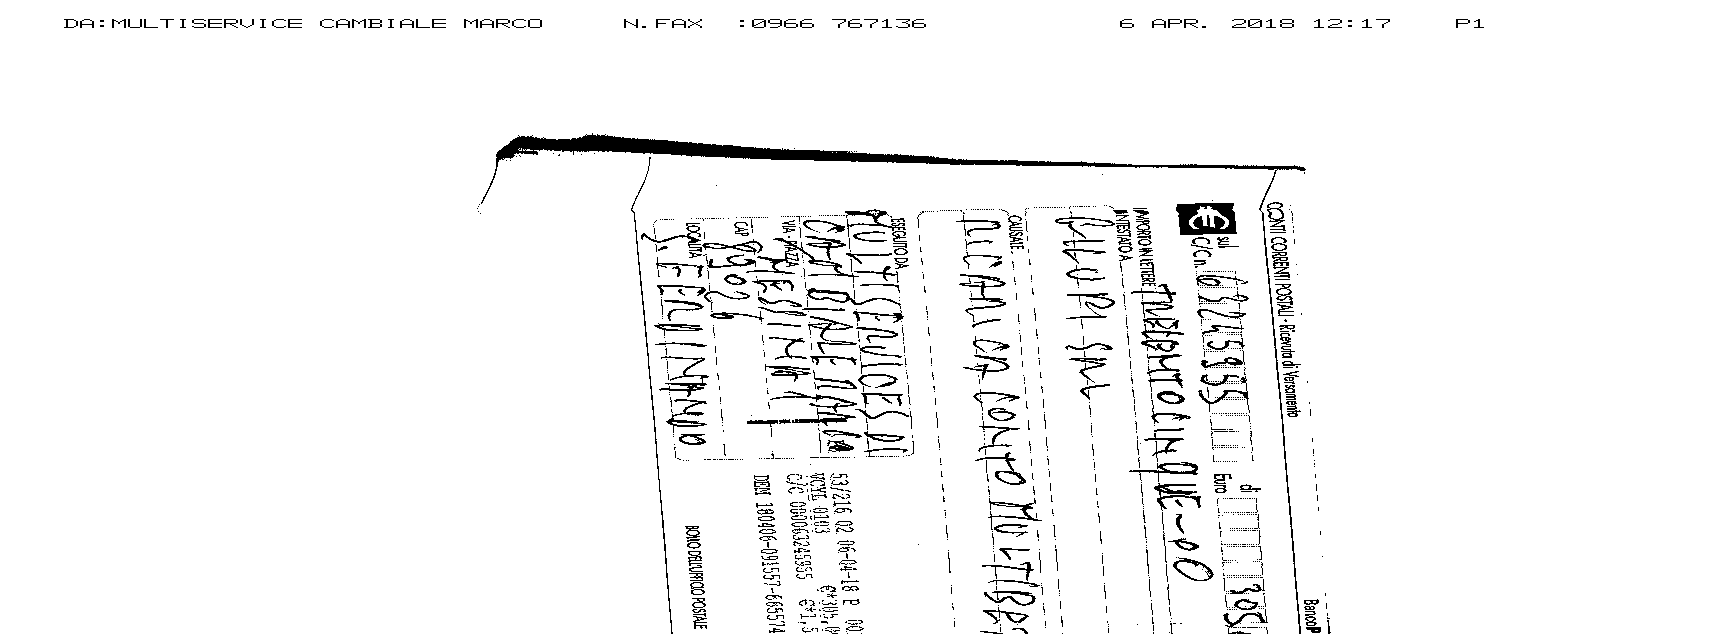 DA:MULTISERVICE CAMBIALE MARCO N.FAX :0966 767136 6 APR. 2018 12:17 P1
CONTI CORRENTI POSTALI - Ricevuta di Versamento
BancoP
sul C/C n. 63245955 di Euro 305,
IMPORTO IN LETTERE TRECENTOCINQUE~00
INTESTATO A
PLLUPI SRL
CAUSALE
RICARICA CONTO MULTIBR
ESEGUITO DA
MULTISERVICES DI
CAMBIALE MARCO
VIA - PIAZZA MESSINA 1
CAP 89026
LOCALITÀ S. FERDINANDO
53/216 02 06-04-18 P 00
VCYL 0103 €*305,0
C/C 000063245955 €*1,5
DIEN 180406-091557-665574
BOLLO DELL'UFFICIO POSTALE